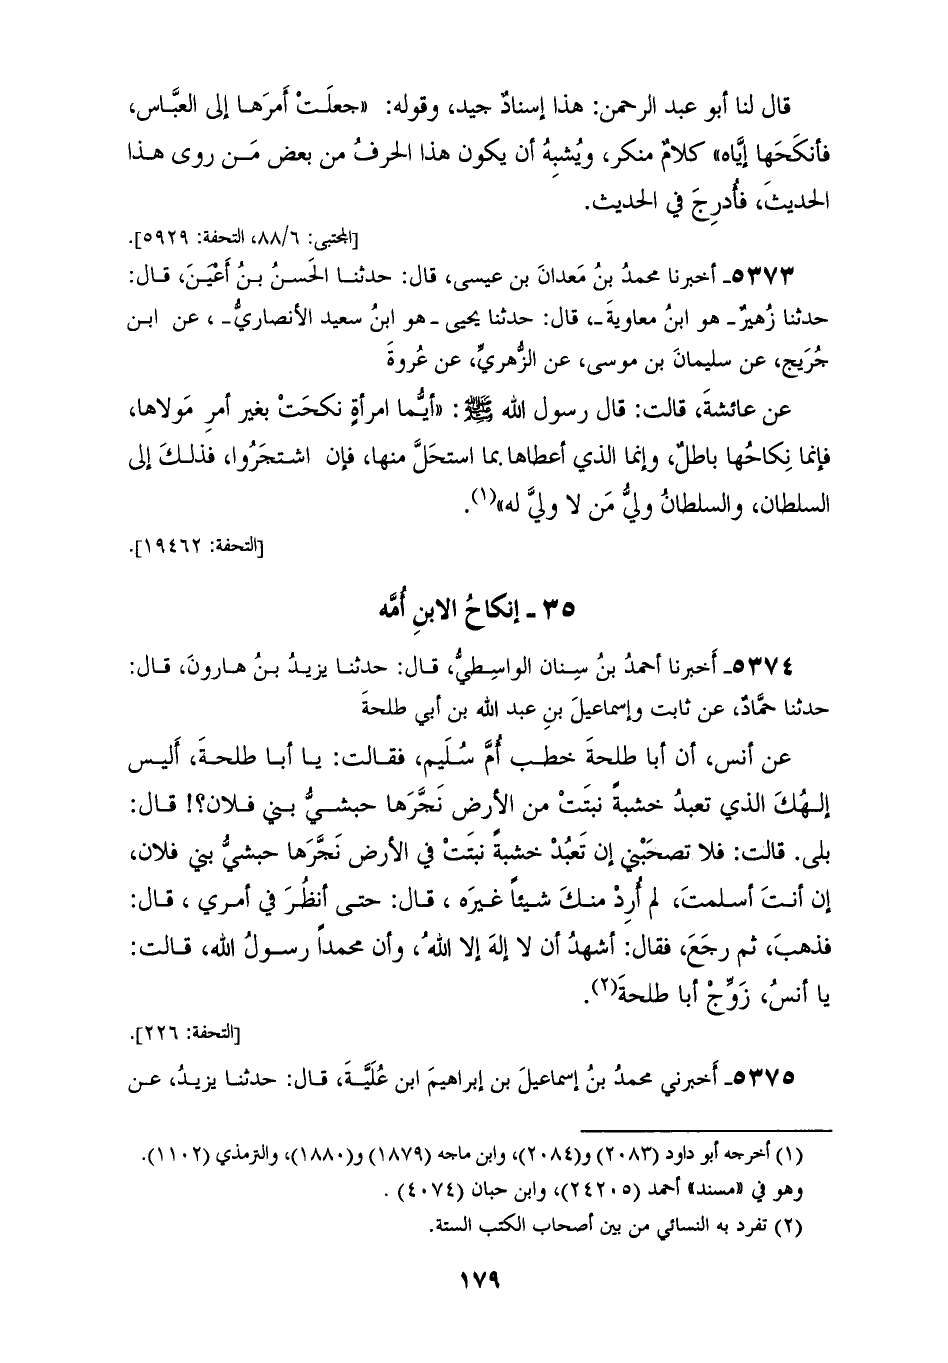 قال لنا أبو عبد الرحمن: هذا إسنادٌ جيد، وقوله: «جعلَتْ أَمرَها إلى العبَّاس،
فأنكَحَها إيَّاه» كلامٌ منكر، ويُشبِهُ أن يكون هذا الحرفُ من بعض مَن روى هذا
الحديثَ، فأُدرِجَ في الحديث.
[المجتبى: ٨٨/٦، التحفة: ٥٩٢٩].
٥٣٧٣ـ أخبرنا محمدُ بنُ مَعدانَ بن عيسى، قال: حدثنا الحَسنُ بنُ أَعْيَنَ، قال:
حدثنا زُهيرٌ ـ هو ابنُ معاويةَ ـ، قال: حدثنا يحيى ـ هو ابنُ سعيد الأنصاريُّ ـ ، عن ابن
جُرَيج، عن سليمانَ بن موسى، عن الزُّهريِّ، عن عُروةَ
عن عائشةَ، قالت: قال رسول الله ﷺ: «أيُّما امرأةٍ نكحَتْ بغير أمرِ مَولاها،
فإنما نِكاحُها باطلٌ، وإنما الذي أعطاها بما استحَلَّ منها، فإن اشتجَرُوا، فذلكَ إلى
السلطان، والسلطانُ وليُّ مَن لا وليَّ له»(١).
[التحفة: ١٩٤٦٢].
٣٥ ـ إنكاحُ الابنِ أُمَّه
٥٣٧٤ـ أَخبرنا أحمدُ بنُ سِنان الواسِطيُّ، قال: حدثنا يزيدُ بنُ هارونَ، قال:
حدثنا حمَّادٌ، عن ثابت وإسماعيلَ بنِ عبد الله بن أبي طلحةَ
عن أنس، أن أبا طلحةَ خطب أُمَّ سُلَيم، فقالت: يا أبا طلحةَ، أَليس
إلهُكَ الذي تعبدُ خشبةً نبتَتْ من الأرض نَجَّرَها حبشيُّ بني فلان؟! قال:
بلى. قالت: فلا تصحَبْني إن تَعبُدْ خشبةً نبتَتْ في الأرض نَجَّرَها حبشيُّ بني فلان،
إن أنتَ أسلمتَ، لم أُرِدْ منكَ شيئاً غيرَه ، قال: حتى أنظُرَ في أمري ، قال:
فذهبَ، ثم رجَعَ، فقال: أشهدُ أن لا إلهَ إلا اللهُ، وأن محمداً رسولُ الله، قالت:
يا أنسُ، زَوِّجْ أبا طلحةَ(٢).
[التحفة: ٢٢٦].
٥٣٧٥ـ أَخبرني محمدُ بنُ إسماعيلَ بن إبراهيمَ ابن عُلَيَّةَ، قال: حدثنا يزيدُ، عن
(١) أخرجه أبو داود (٢٠٨٣) و(٢٠٨٤)، وابن ماجه (١٨٧٩) و(١٨٨٠)، والترمذي (١١٠٢).
وهو في «مسند» أحمد (٢٤٢٠٥)، وابن حبان (٤٠٧٤) .
(٢) تفرد به النسائي من بين أصحاب الكتب الستة.
١٧٩